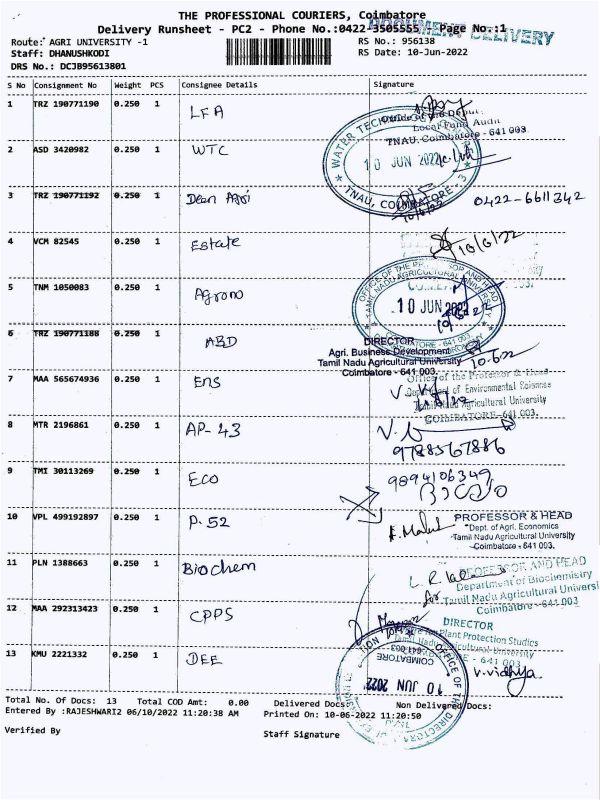 THE PROFESSIONAL COURIERS, Coimbatore
Delivery Runsheet - PC2 - Phone No.:0422-3505555 Page No.:1
DOCUMENT DELIVERY
Route: AGRI UNIVERSITY -1
RS No.: 956138
Staff: DHANUSHKODI
RS Date: 10-Jun-2022
DRS No.: DCJB95613801
S No Consignment No Weight PCS Consignee Details Signature
1 TRZ 190771190 0.250 1 LFA
Local Fund Audit
TNAU, Coimbatore - 641 003.
2 ASD 3420982 0.250 1 WTC
10 JUN 2022
TNAU, COIMBATORE - 3
3 TRZ 190771192 0.250 1 Dean Agri 0422-6611342
10/6/22
4 VCM 82545 0.250 1 Estate 10/6/22
5 TNM 1050083 0.250 1 Agrono
TAMIL NADU AGRICULTURAL UNIVERSITY
10 JUN 2022
6 TRZ 190771188 0.250 1 ABD
DIRECTOR
Agri. Business Development
Tamil Nadu Agricultural University
Coimbatore - 641 003.
10.6.22
7 MAA 565674936 0.250 1 ENS
Office of the Professor & Head
Department of Environmental Sciences
Tamil Nadu Agricultural University
COIMBATORE-641 003.
8 MTR 2196861 0.250 1 AP-43
9788567886
9 TMI 30113269 0.250 1 ECO
9894106349
10 VPL 499192897 0.250 1 P-52
PROFESSOR & HEAD
Dept. of Agri. Economics
Tamil Nadu Agricultural University
Coimbatore - 641 003.
11 PLN 1388663 0.250 1 Biochem
PROFESSOR AND HEAD
Department of Biochemistry
for Tamil Nadu Agricultural Universi
Coimbatore-641 003
12 MAA 292313423 0.250 1 CPPS
DIRECTOR
Centre for Plant Protection Studies
Tamil Nadu Agricultural University
13 KMU 2221332 0.250 1 DEE
OFFICE OF THE DIRECTOR
COIMBATORE
10 JUN 2022
V.Vidhya
Total No. Of Docs: 13 Total COD Amt: 0.00 Delivered Docs: Non Delivered Docs:
Entered By :RAJESHWARI2 06/10/2022 11:20:38 AM Printed On: 10-06-2022 11:20:50
Verified By Staff Signature